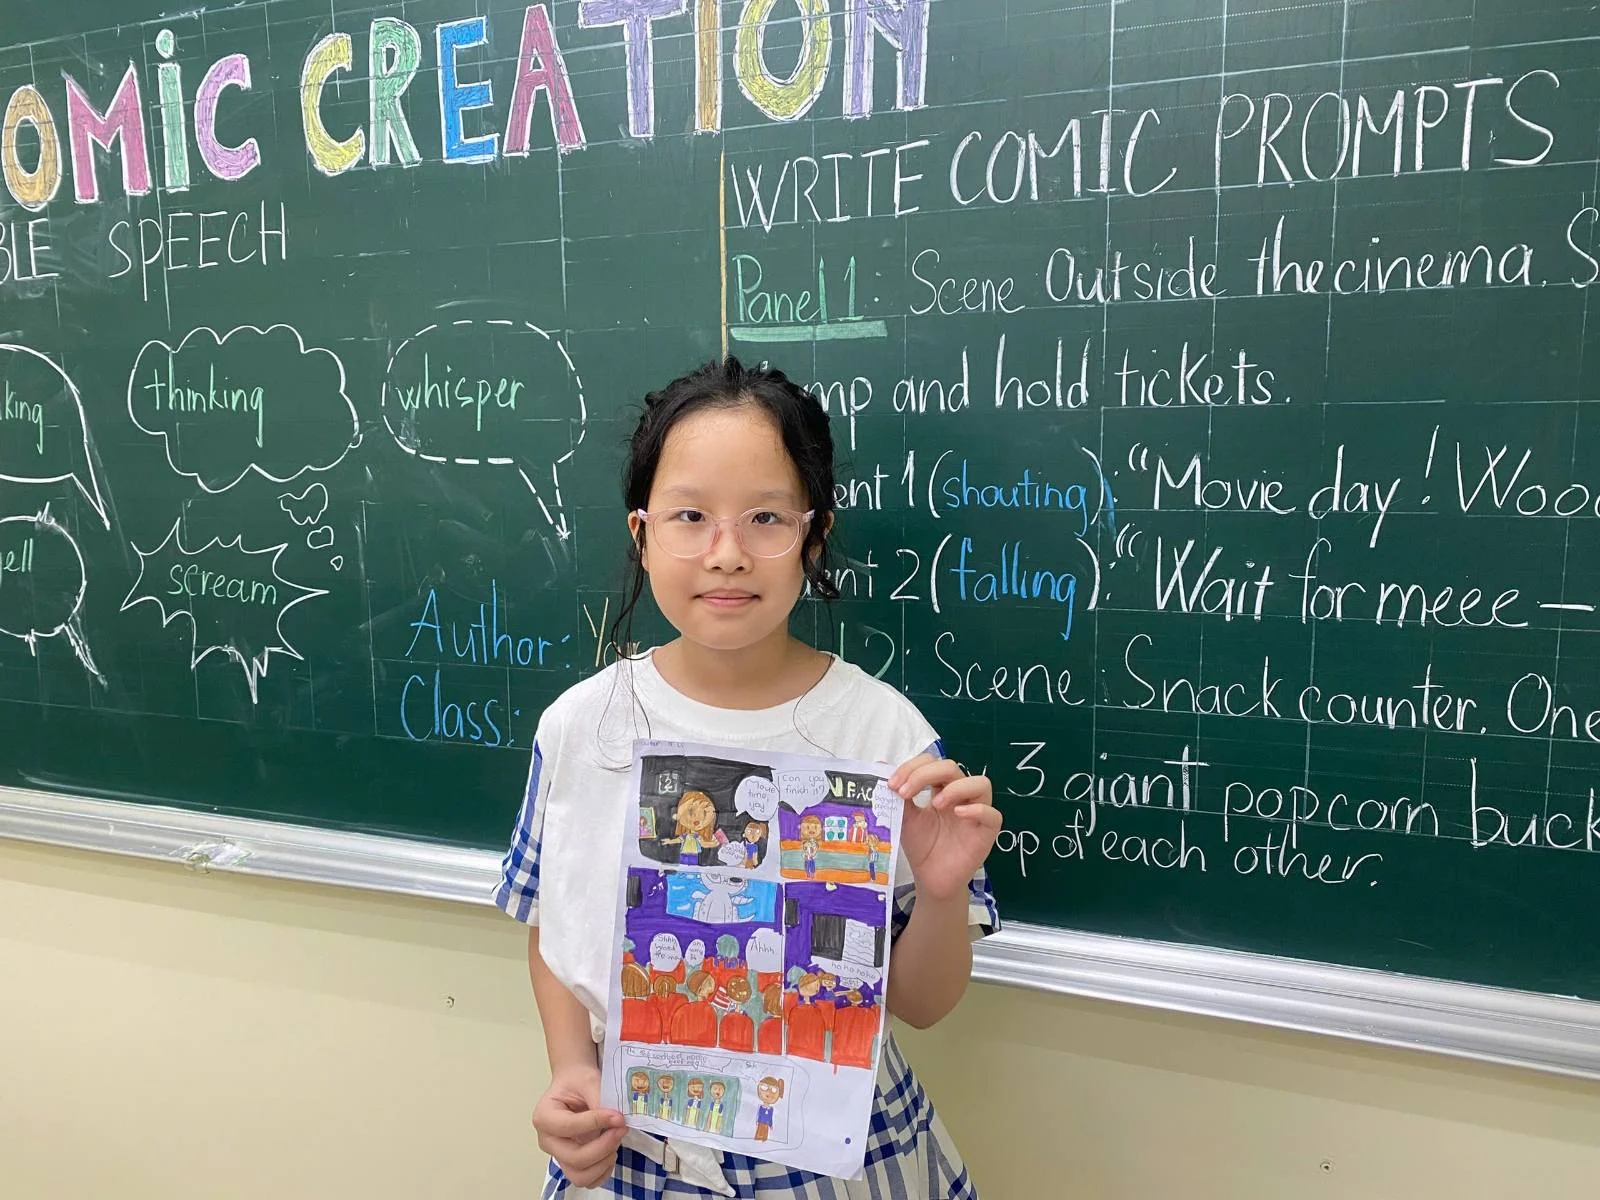 OMIC CREATION
BLE SPEECH
king
thinking
whisper
ell
scream
Author:
Class:
WRITE COMIC PROMPTS
Panel 1: Scene Outside the cinema. S
mp and hold tickets.
ent 1 (shouting): "Movie day! Wooo
ent 2 (falling): "Wait for meeee —
2: Scene: Snack counter. One
3 giant popcorn buck
op of each other.
Movie
time,
yay
Can you
finish it?
Shhh
watch
the movie
Ahhh
ha ha ha ha